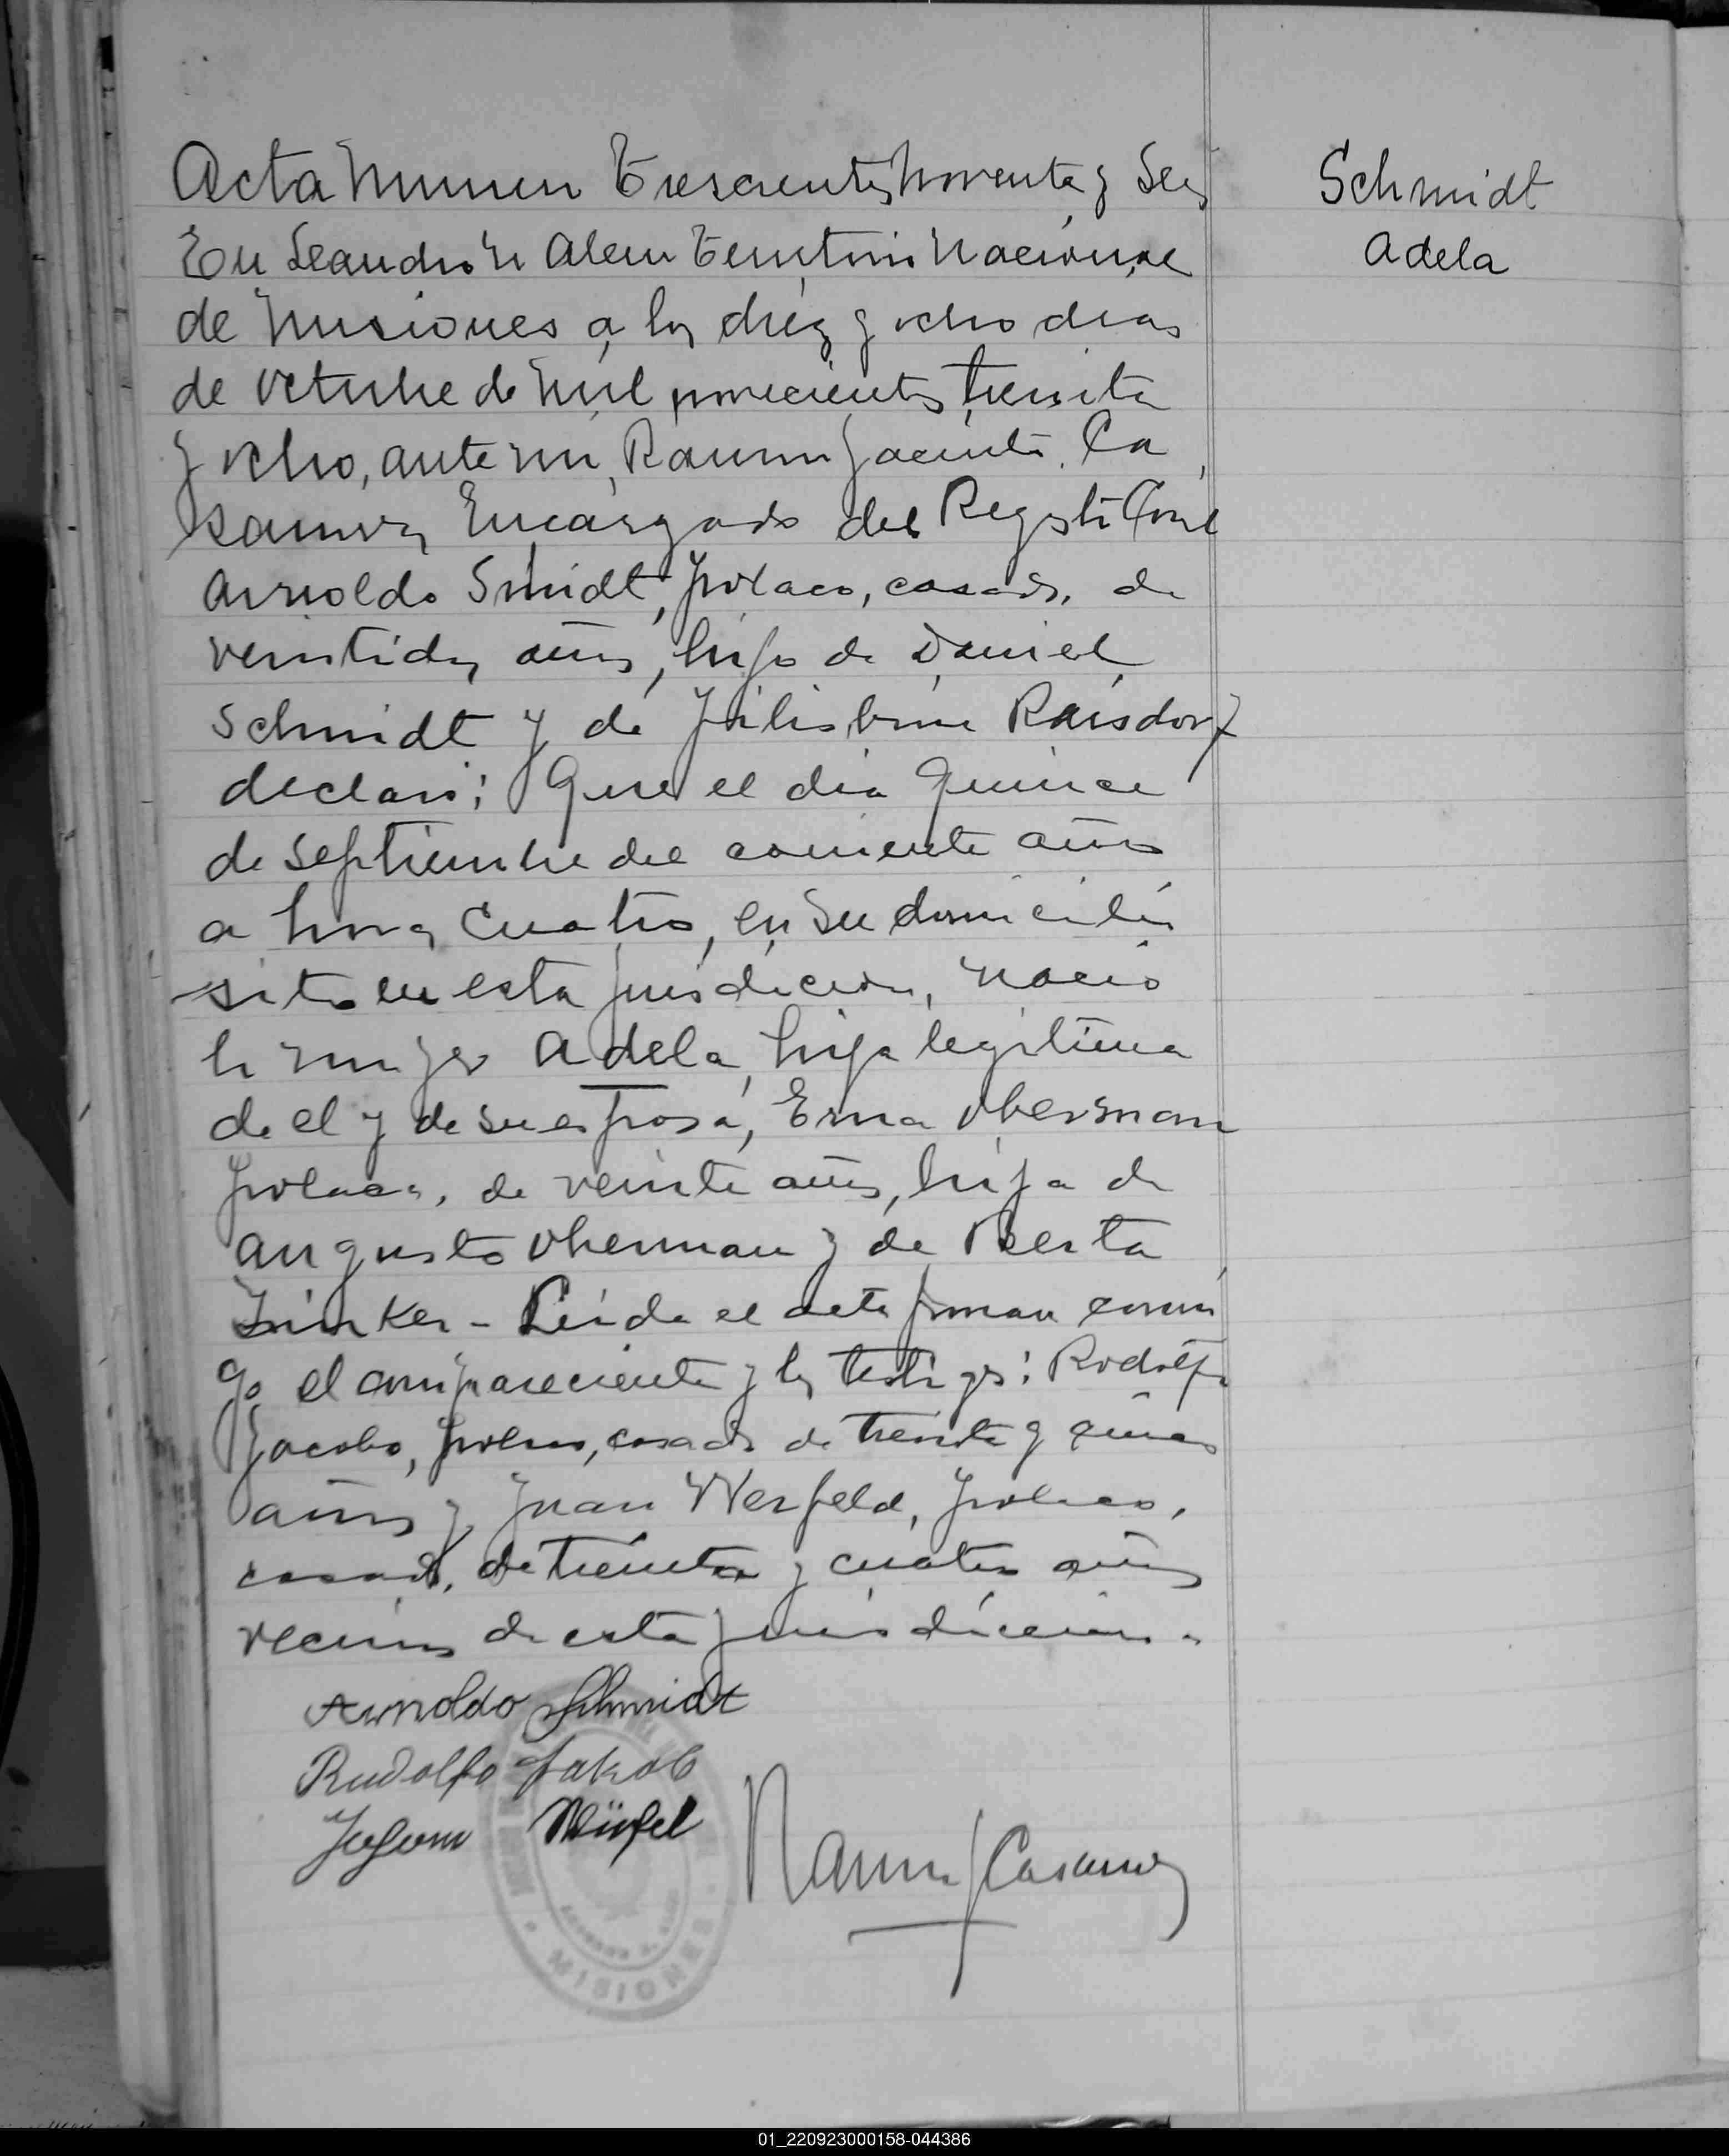 Acta Numero Trescientos noventa y Seis
Schmidt
Adela
En Leandro N Alem Territorio Nacional
de Misiones a los diez y ocho dias
de Octubre de Mil novecientos treinta
y ocho, ante mi, Ramon Jacinto Ca
samis, Encargado del Registro Civil
Arnoldo Smidt, polaco, casado, de
veintidos años, hijo de Daniel
Schmidt y de Raisdorf
declaro: Que el dia quince
de septiembre del corriente año
a horas cuatro, en su domicilio
sito en esta jurisdiccion, nacio
la mujer Adela, hija legitima
de el y de su esposa, Erna Oberman
polaca, de veinte años, hija de
Augusto Oberman y de Berta
Zinker - Leida el acta firman conmi
go el compareciente y los testigos: Rodolfo
Jacobo, polaco, casado de treinta y años
años y Juan Werfeld, polaco,
casado, de treinta y cuatro años
vecinos de esta jurisdiccion.
Arnoldo Schmidt
Rudolfo Jakob
Würfel
Ramon J Casa
MISIONES
01_220923000158-044386